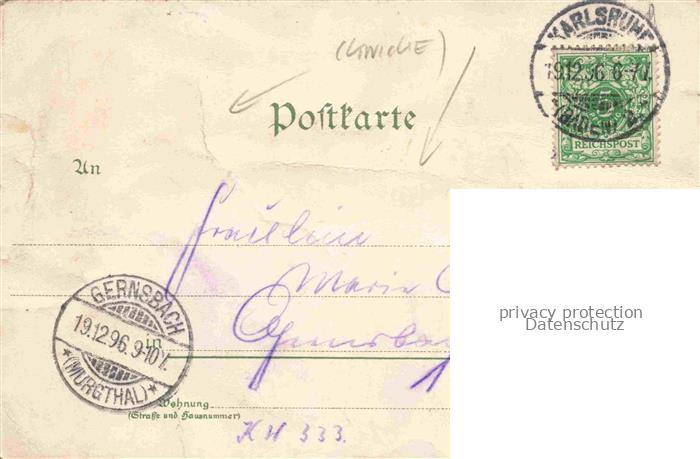 (KNICKE)
KARLSRUHE
19.12.96.6-7V.
(BADEN)
REICHSPOST
Postkarte
An
Fräulein
Marie
Gernsba
privacy protection
Datenschutz
GERNSBACH
19.12.96.9-10V.
*(MURGTHAL)*
in
Wohnung
(Straße und Hausnummer)
KH 333.